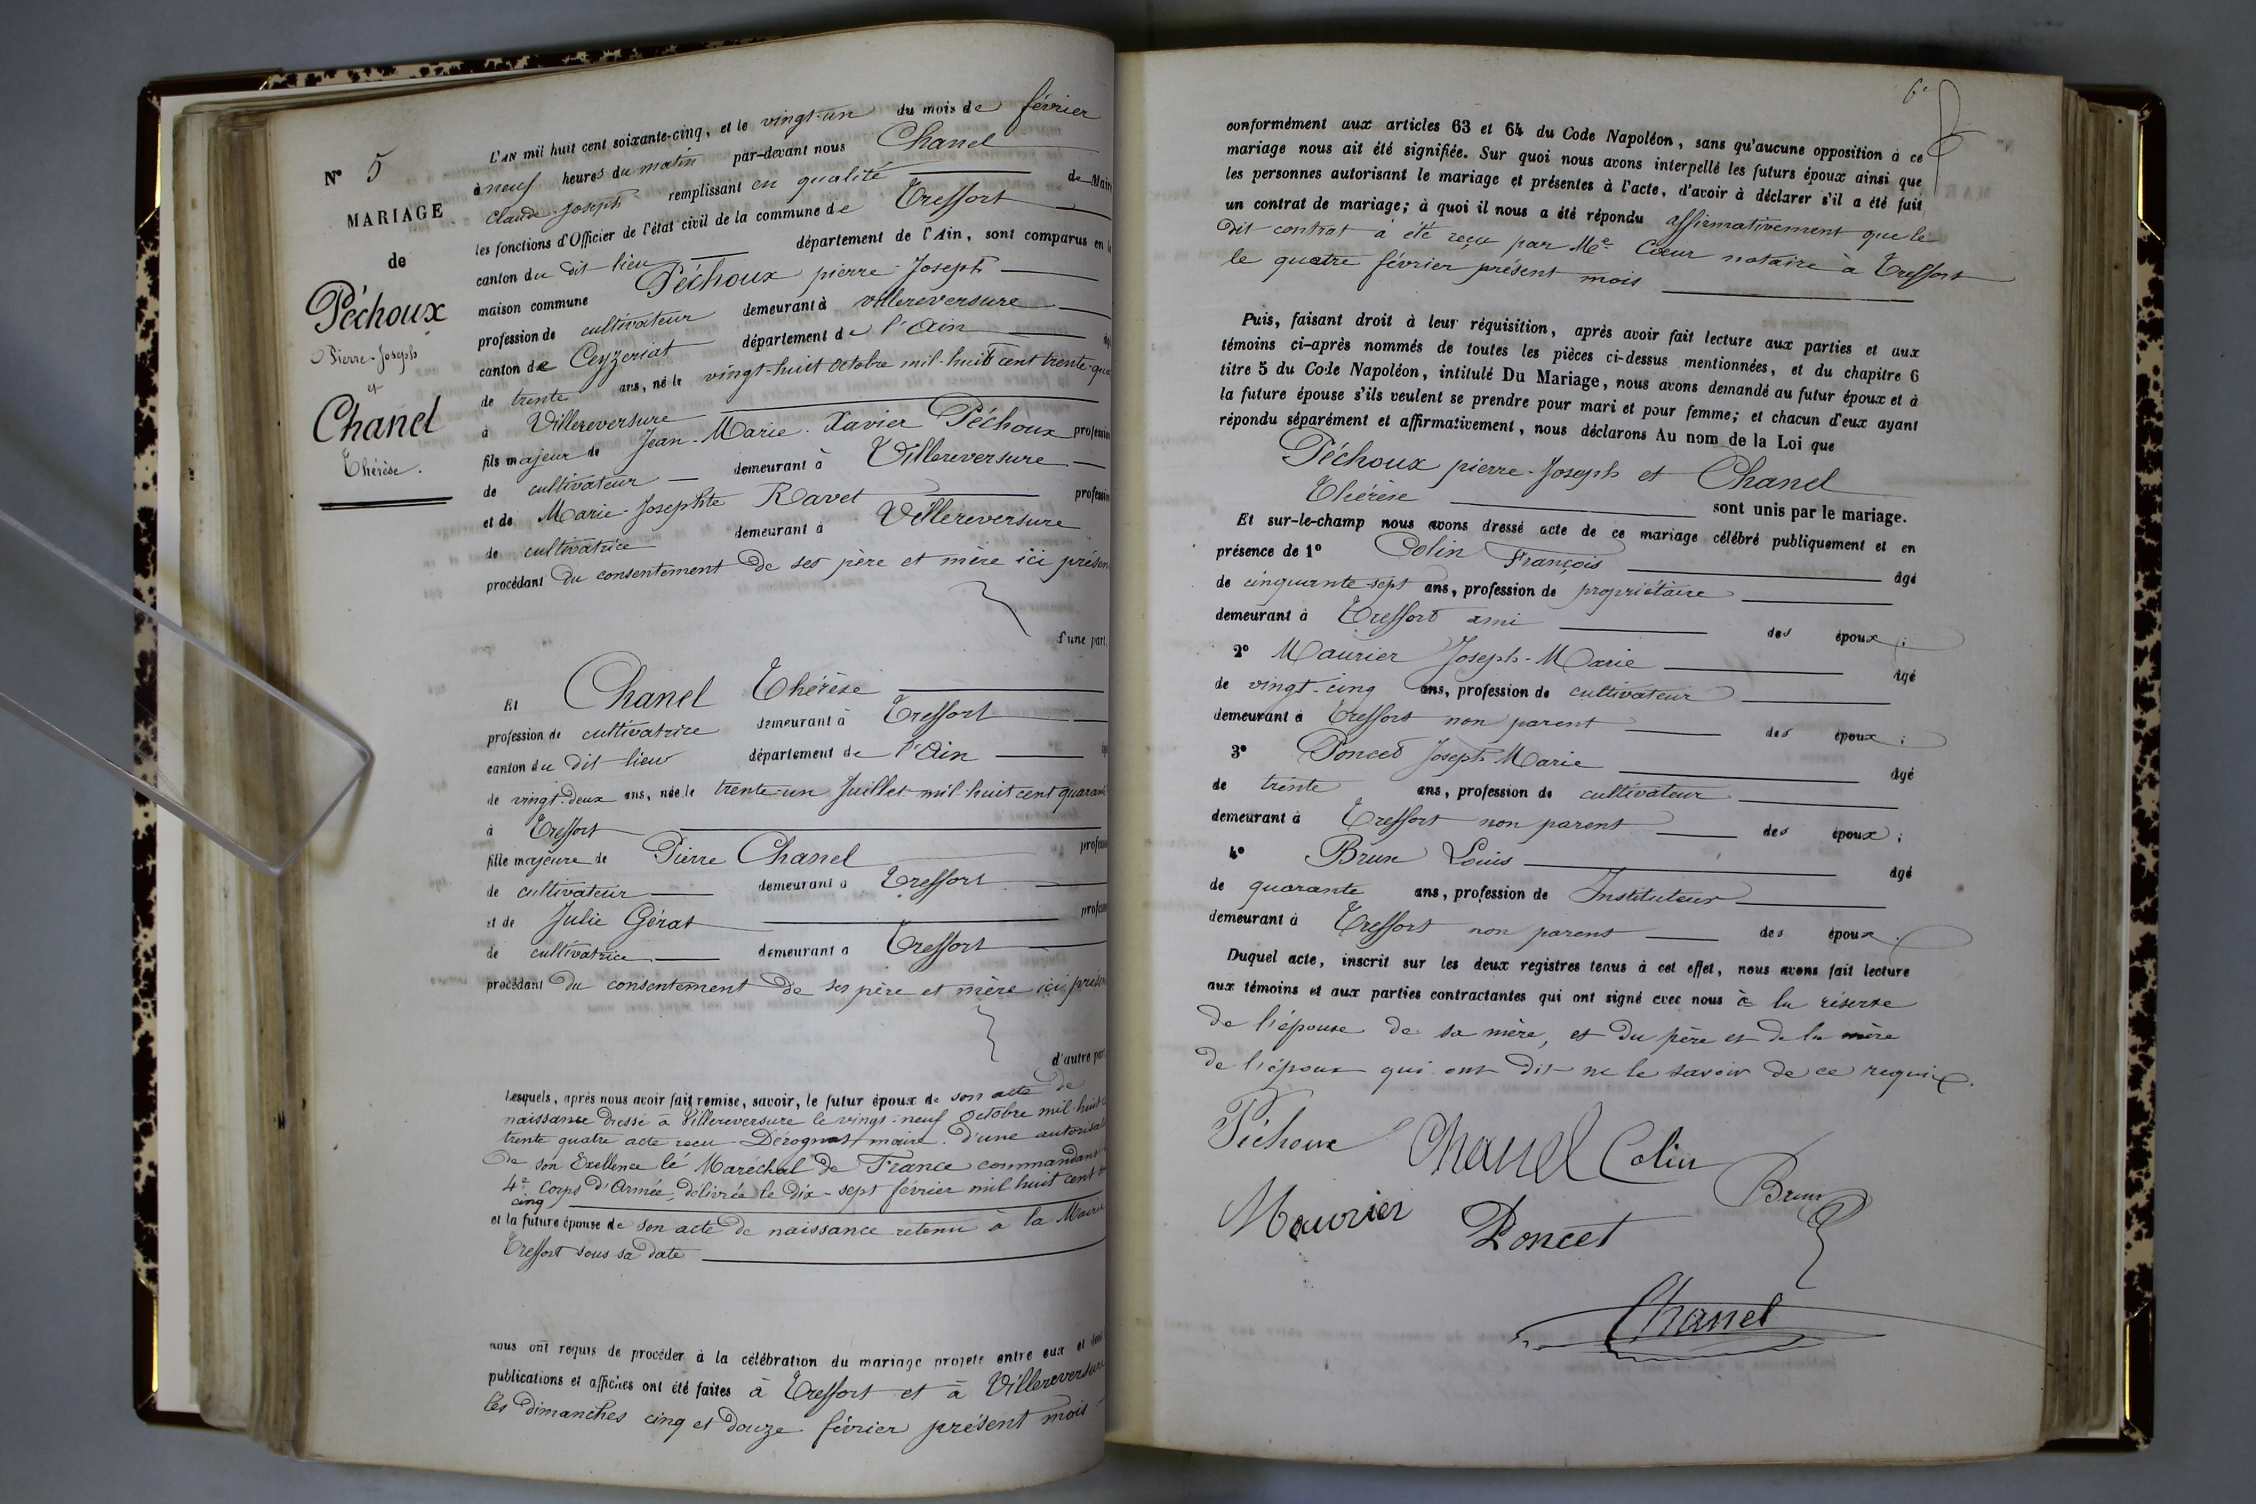 N° 5
MARIAGE
de
Péchoux
Pierre-Joseph
et
Chanel
Thérèse.
L'AN mil huit cent soixante-cinq, et le vingt-un du mois de février
à neuf heures du matin par-devant nous Chanel
Claude-Joseph remplissant en qualité de Maire
les fonctions d'Officier de l'état civil de la commune de Treffort
canton du dit-lieu département de l'Ain, sont comparus en la
maison commune Péchoux pierre-Joseph
profession de cultivateur demeurant à villereversure
canton de Ceyzeriat département de l'Ain
de trente ans, né le vingt-huit octobre mil-huit cent trente-qua
à Villereversure
fils majeur de Jean-Marie-Xavier Péchoux profession
de cultivateur demeurant à Villereversure
et de Marie-Josephte Ravet profession
de cultivatrice demeurant à Villereversure
procédant du consentement de ses père et mère ici présen
d'une part,
Et Chanel Thérèse
profession de cultivatrice demeurant à Treffort
canton du dit-lieu département de l'Ain
de vingt-deux ans, née le trente-un Juillet mil-huit cent quarant
à Treffort
fille majeure de Pierre Chanel profession
de cultivateur demeurant à Treffort
et de Julie Gérat profession
de cultivatrice demeurant à Treffort
procédant du consentement de ses père et mère ici présen
d'autre part
Lesquels, après nous avoir fait remise, savoir, le futur époux de son acte de
naissance dressé à Villereversure le vingt-neuf octobre mil-huit c
trente quatre acte reçu Dérognat maire. d'une autorisat
de son Exellence le Maréchal de France commandant
4e Corps d'Armée, délivrée le dix-sept février mil huit cent
cinq
et la future épouse de son acte de naissance retenu à la Mairie
Treffort sous sa date
nous ont requis de procéder à la célébration du mariage projeté entre eux et dont
publications et affiches ont été faites à Treffort et à Villereversure
les dimanches cinq et douze février présent mois
6e
conformément aux articles 63 et 64 du Code Napoléon, sans qu'aucune opposition à ce
mariage nous ait été signifiée. Sur quoi nous avons interpellé les futurs époux ainsi que
les personnes autorisant le mariage et présentes à l'acte, d'avoir à déclarer s'il a été fait
un contrat de mariage; à quoi il nous a été répondu affirmativement que le
dit contrat a été reçu par Me Cœur notaire à Treffort
le quatre février présent mois
Puis, faisant droit à leur réquisition, après avoir fait lecture aux parties et aux
témoins ci-après nommés de toutes les pièces ci-dessus mentionnées, et du chapitre 6
titre 5 du Code Napoléon, intitulé Du Mariage, nous avons demandé au futur époux et à
la future épouse s'ils veulent se prendre pour mari et pour femme; et chacun d'eux ayant
répondu séparément et affirmativement, nous déclarons Au nom de la Loi que
Péchoux pierre-Joseph et Chanel
Thérèse sont unis par le mariage.
Et sur-le-champ nous avons dressé acte de ce mariage célébré publiquement et en
présence de 1° Colin François âgé
de cinquante-sept ans, profession de propriétaire
demeurant à Treffort ami des époux;
2° Maurier Joseph-Marie âgé
de vingt-cinq ans, profession de cultivateur
demeurant à Treffort non parent des époux;
3° Poncet Joseph-Marie âgé
de trente ans, profession de cultivateur
demeurant à Treffort non parent des époux;
4° Brun Louis âgé
de quarante ans, profession de Instituteur
demeurant à Treffort non parent des époux.
Duquel acte, inscrit sur les deux registres tenus à cet effet, nous avons fait lecture
aux témoins et aux parties contractantes qui ont signé avec nous à la réserve
de l'épouse de sa mère, et du père et de la mère
de l'époux qui ont dit ne le savoir de ce requis.
Péchoux Chanel Colin
Brun
Maurier Poncet
Chanel